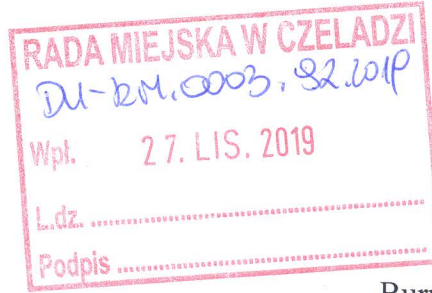 RADA MIEJSKA W CZELADZI
DU-RM.0003.92.2019
Wpł. 27. LIS. 2019
L.dz.
Podpis
Bur